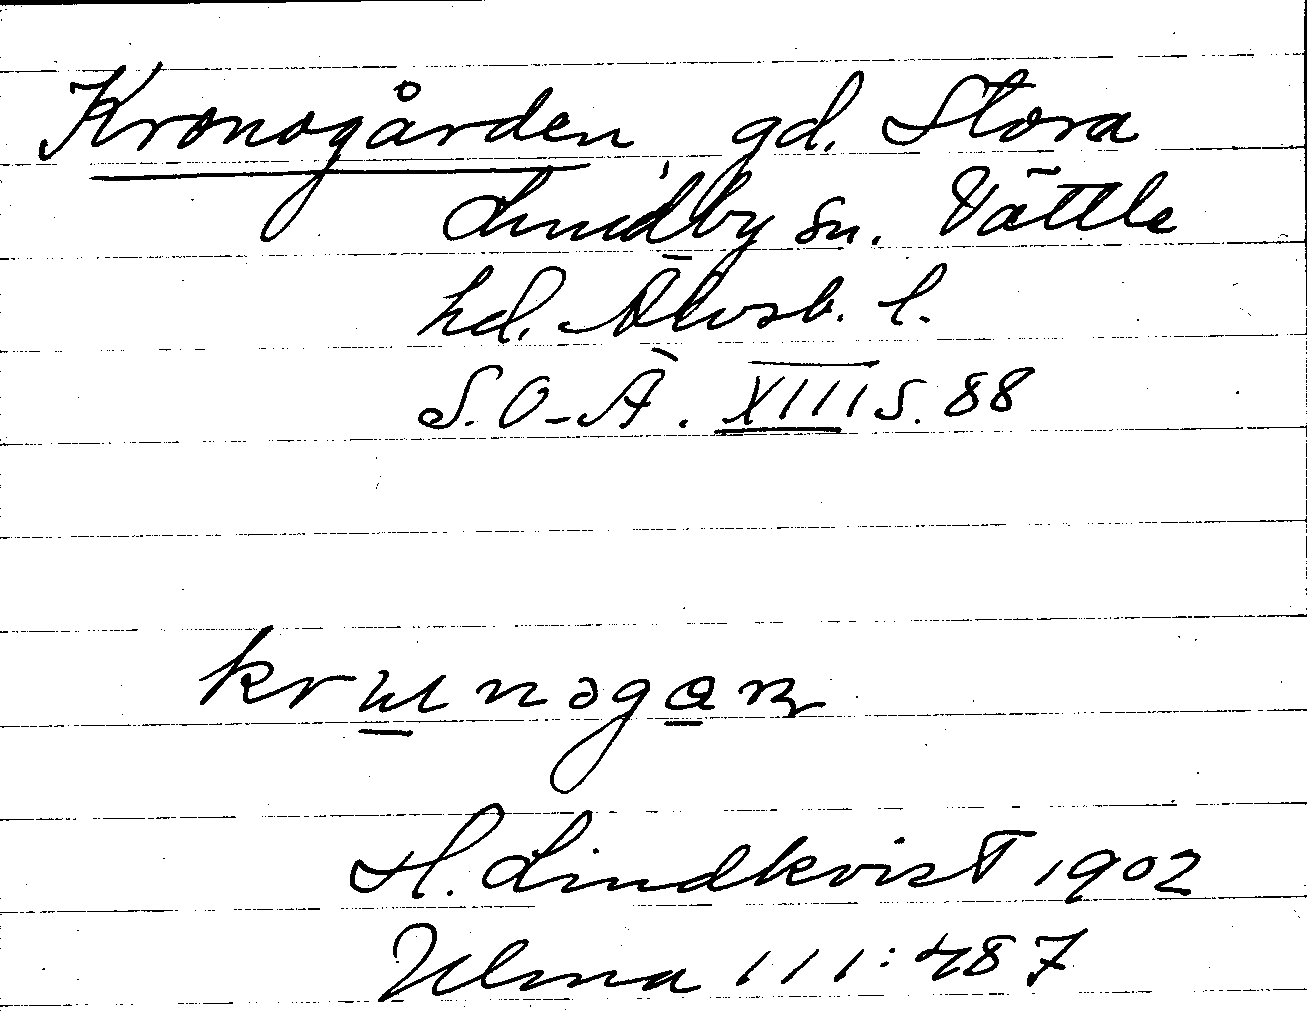 Kronogården, gd. Stora
Lundby sn. Vättle
hd. Älvsb. l.
S.O-Ä. XIII s. 88
H. Lindkvist 1902
Ulma 111:487